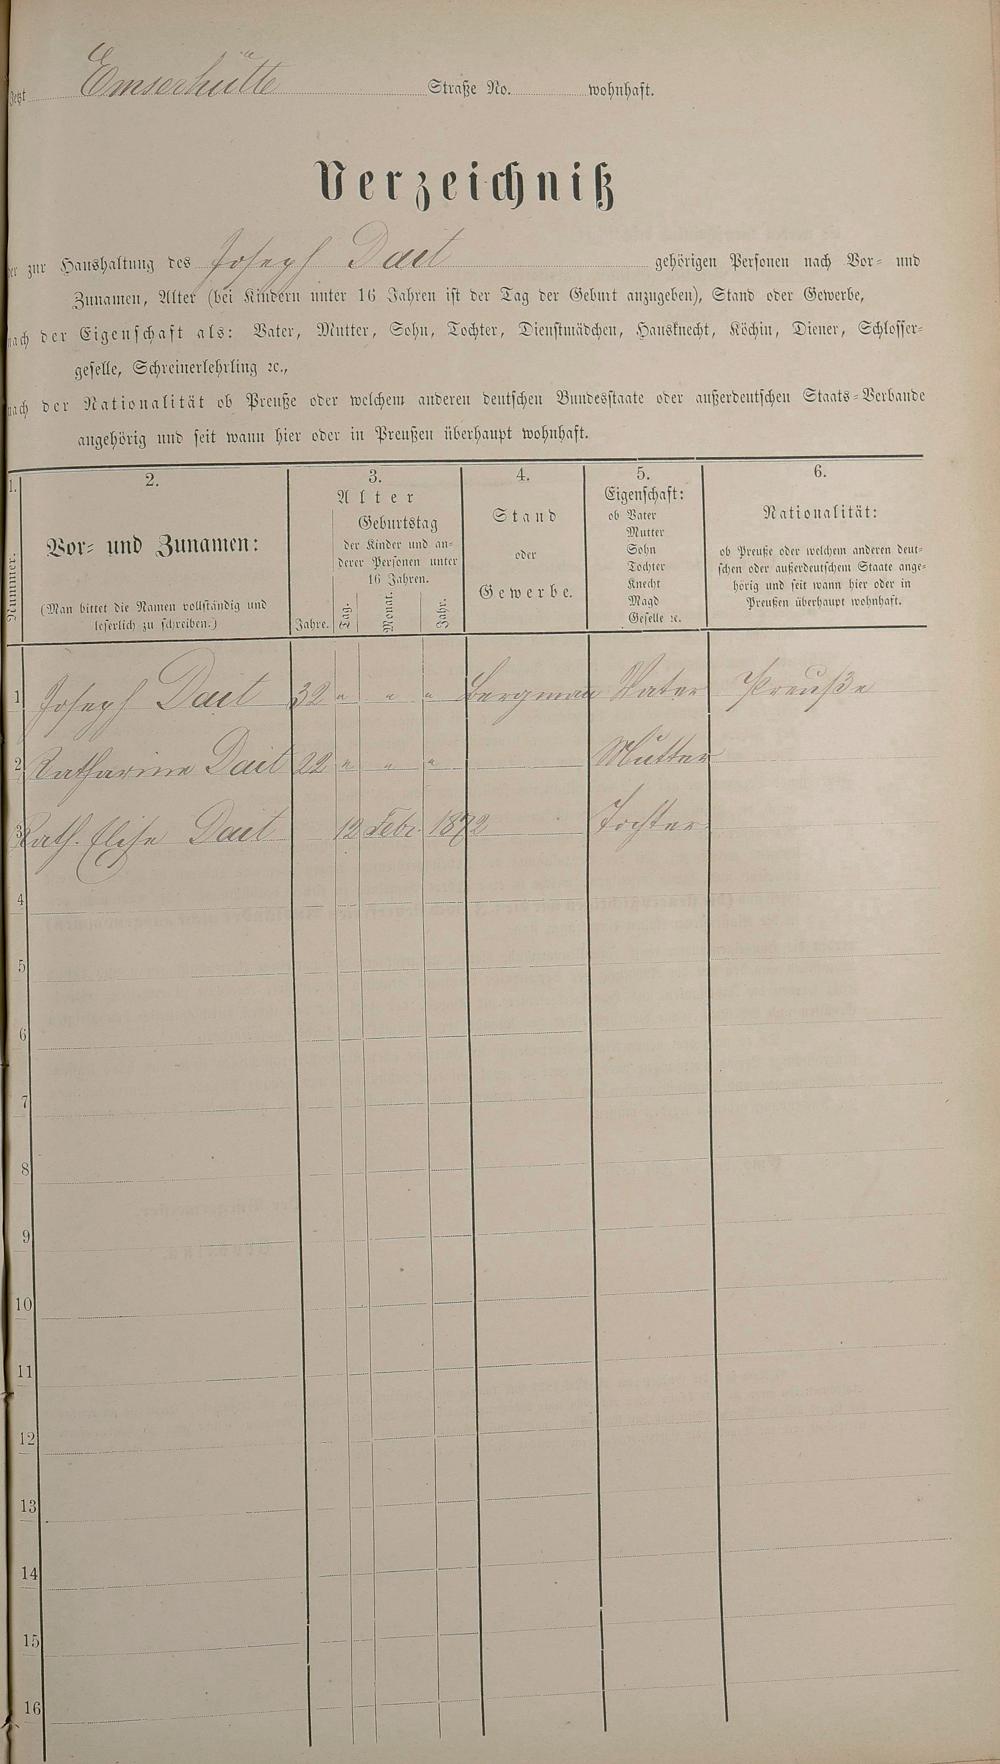 Jetzt Emserhütte Straße No. wohnhaft.
Verzeichniß
der zur Haushaltung des Joseph Dait gehörigen Personen nach Vor- und
Zunamen, Alter (bei Kindern unter 16 Jahren ist der Tag der Geburt anzugeben), Stand oder Gewerbe,
nach der Eigenschaft als: Vater, Mutter, Sohn, Tochter, Dienstmädchen, Hausknecht, Köchin, Diener, Schlosser-
geselle, Schreinerlehrling ꝛc.,
nach der Nationalität ob Preuße oder welchem anderen deutschen Bundesstaate oder außerdeutschen Staats-Verbande
angehörig und seit wann hier oder in Preußen überhaupt wohnhaft.
1. 2. 3. 4. 5. 6.
Nummer.
Vor- und Zunamen:
(Man bittet die Namen vollständig und
leserlich zu schreiben.)
Alter
Geburtstag
der Kinder und an-
derer Personen unter
16 Jahren.
Jahre. Tag. Monat. Jahr.
Stand
oder
Gewerbe.
Eigenschaft:
ob Vater
Mutter
Sohn
Tochter
Knecht
Magd
Geselle ꝛc.
Nationalität:
ob Preuße oder welchem anderen deut-
schen oder außerdeutschem Staate ange-
hörig und seit wann hier oder in
Preußen überhaupt wohnhaft.
1 Joseph Dait 32 " " " Bergman Vater Preuße
2 Katharine Dait 22 " " " Mutter
3 Kath. Elise Dait 12 Febr. 1872 Tochter
4
5
6
7
8
9
10
11
12
13
14
15
16